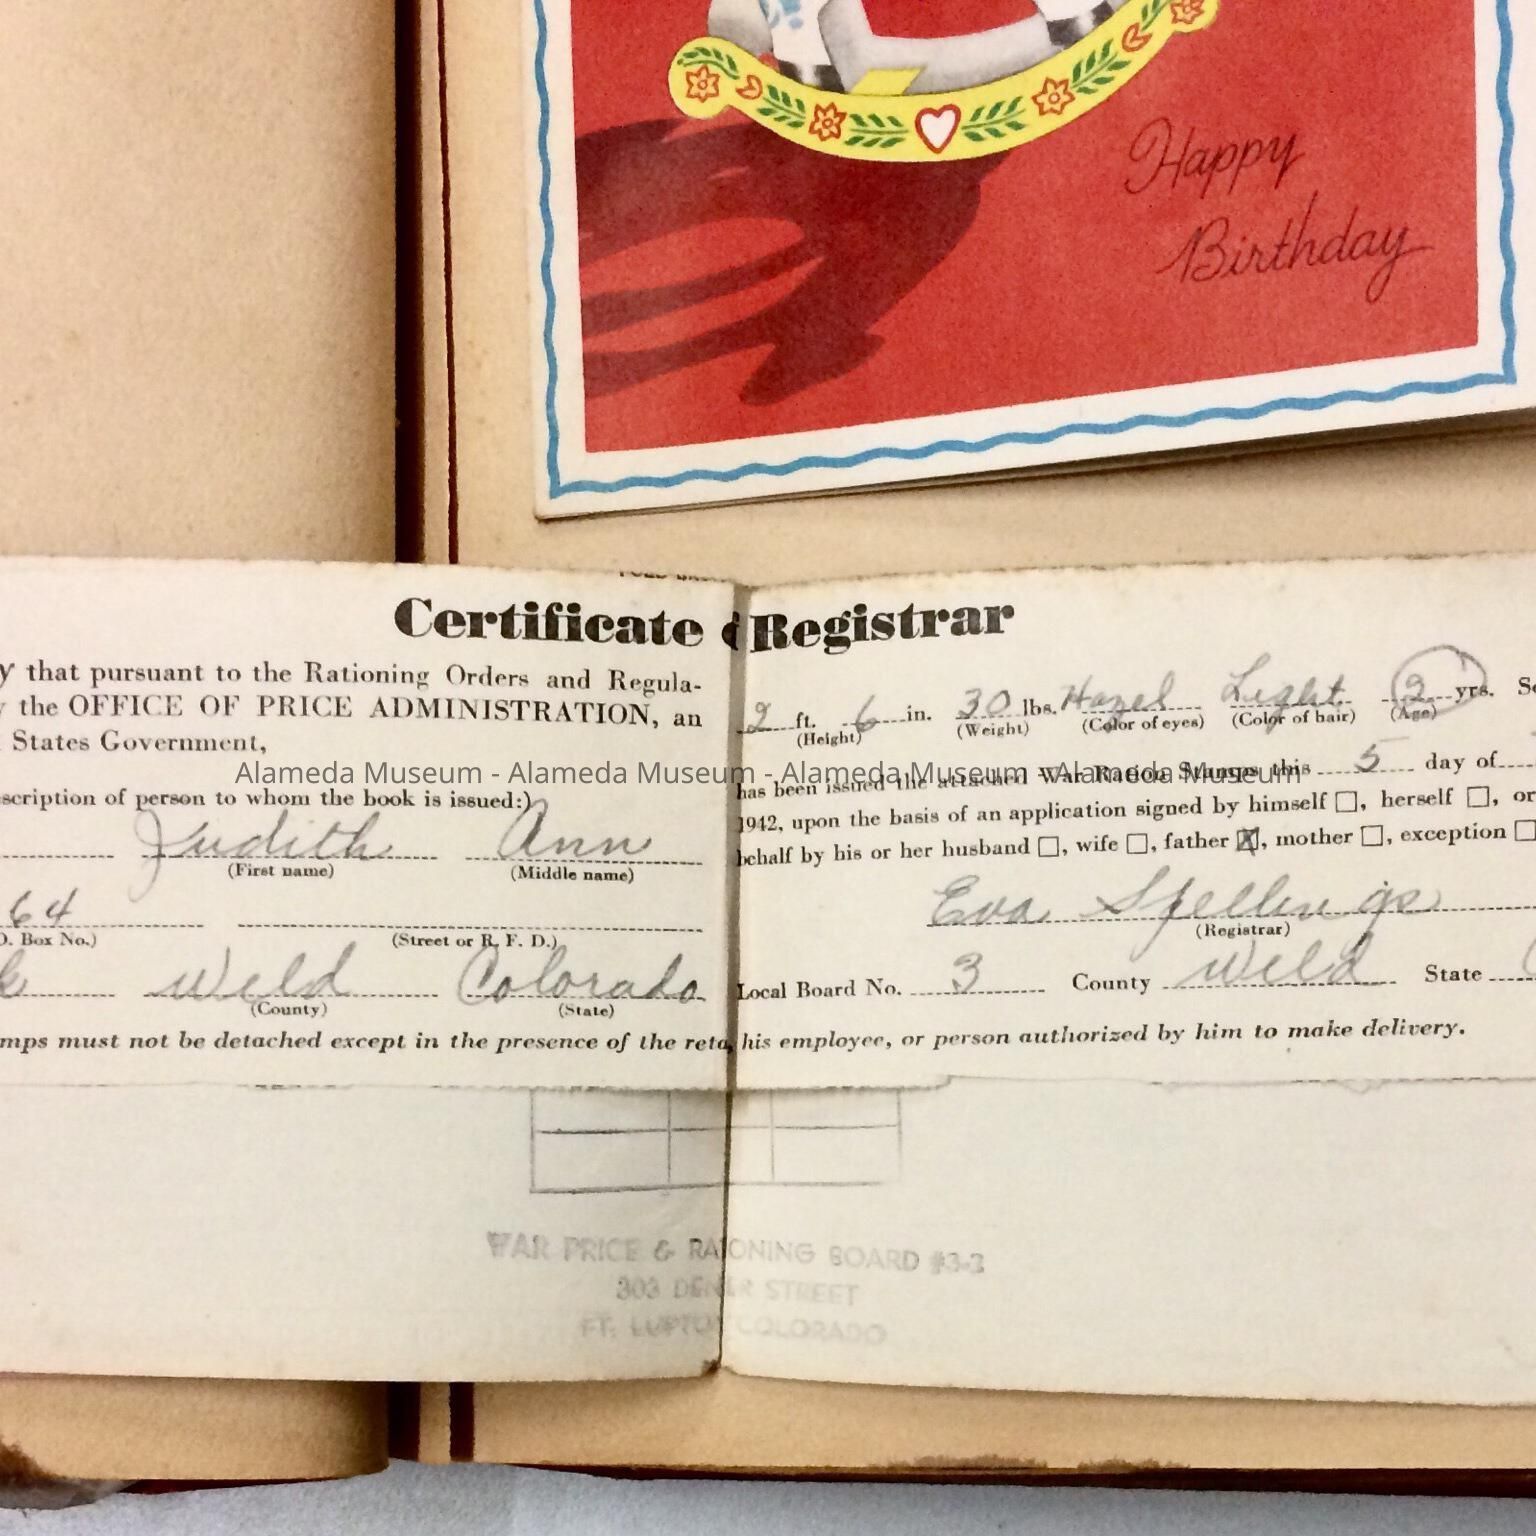 Happy
Birthday
Certificate Registrar
that pursuant to the Rationing Orders and Regula-
the OFFICE OF PRICE ADMINISTRATION, an
States Government,
scription of person to whom the book is issued:)
Judith Ann
(First name) (Middle name)
64
O. Box No.) (Street or R. F. D.)
Weld Colorado
(County) (State)
mps must not be detached except in the presence of the reta
2 ft. 6 in. 30 lbs. Hazel Light 2 yrs.
(Height) (Weight) (Color of eyes) (Color of hair) (Age)
has been issued the attached War Ration Stamps this 5 day of
1942, upon the basis of an application signed by himself ☐, herself ☐, or
behalf by his or her husband ☐, wife ☐, father ☒, mother ☐, exception ☐
Eva Spellings
(Registrar)
Local Board No. 3 County Weld State
his employee, or person authorized by him to make delivery.
Alameda Museum - Alameda Museum - Alameda Museum - Alameda Museum
WAR PRICE & RATIONING BOARD #3-3
303 STREET
FT. LUPTON COLORADO